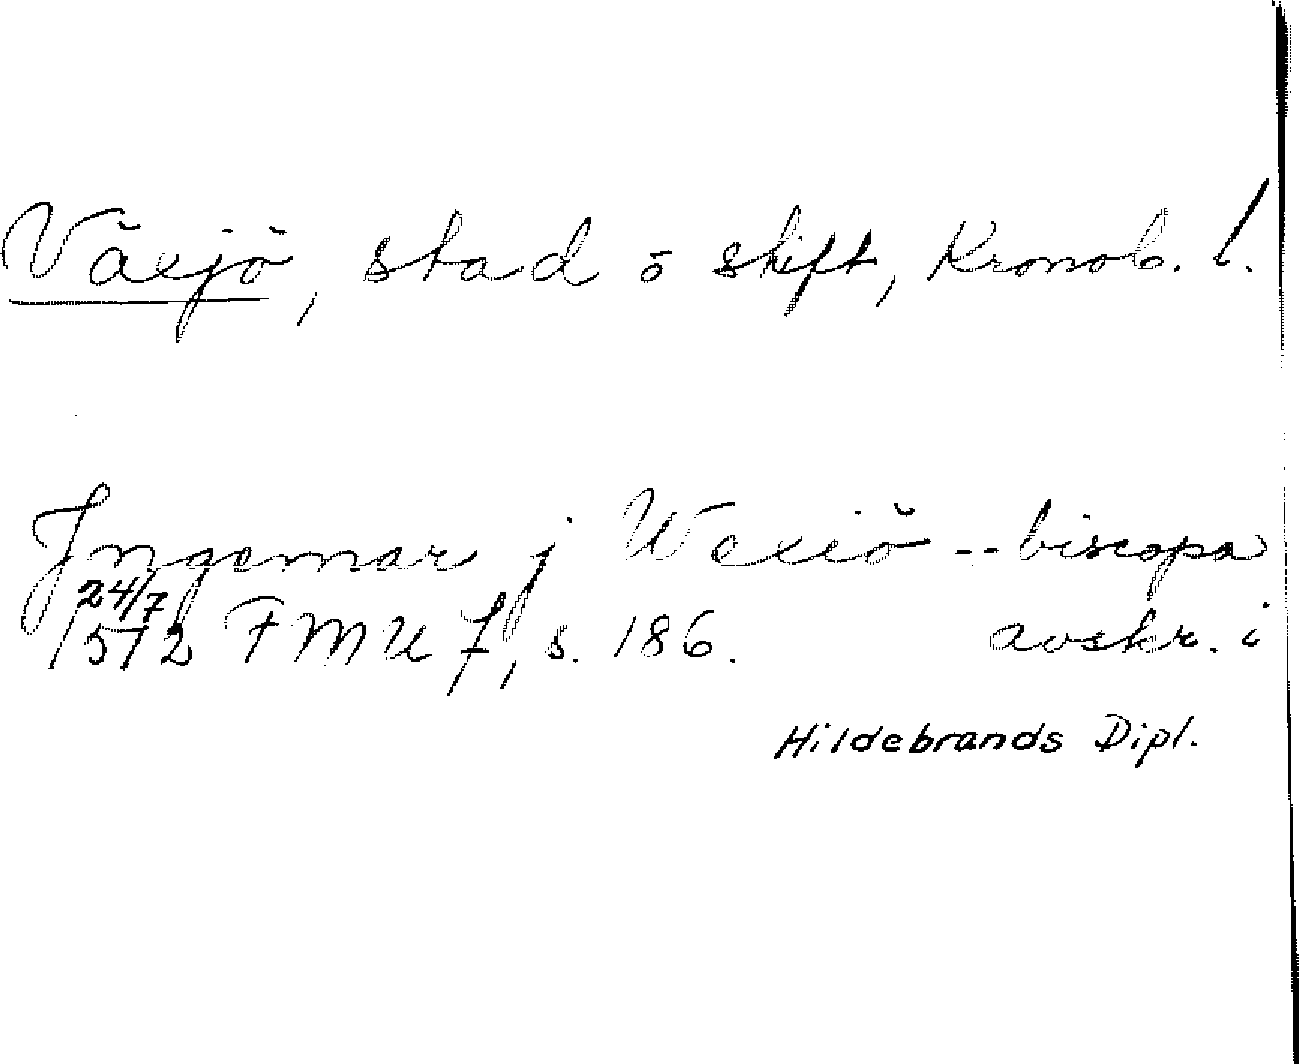 Växjö, stad o skift, Kronob. l.
Ingemar j Wexiö -- biscopa
24/7
1512 FMU 7, s. 186. avskr. i
Hildebrands Dipl.